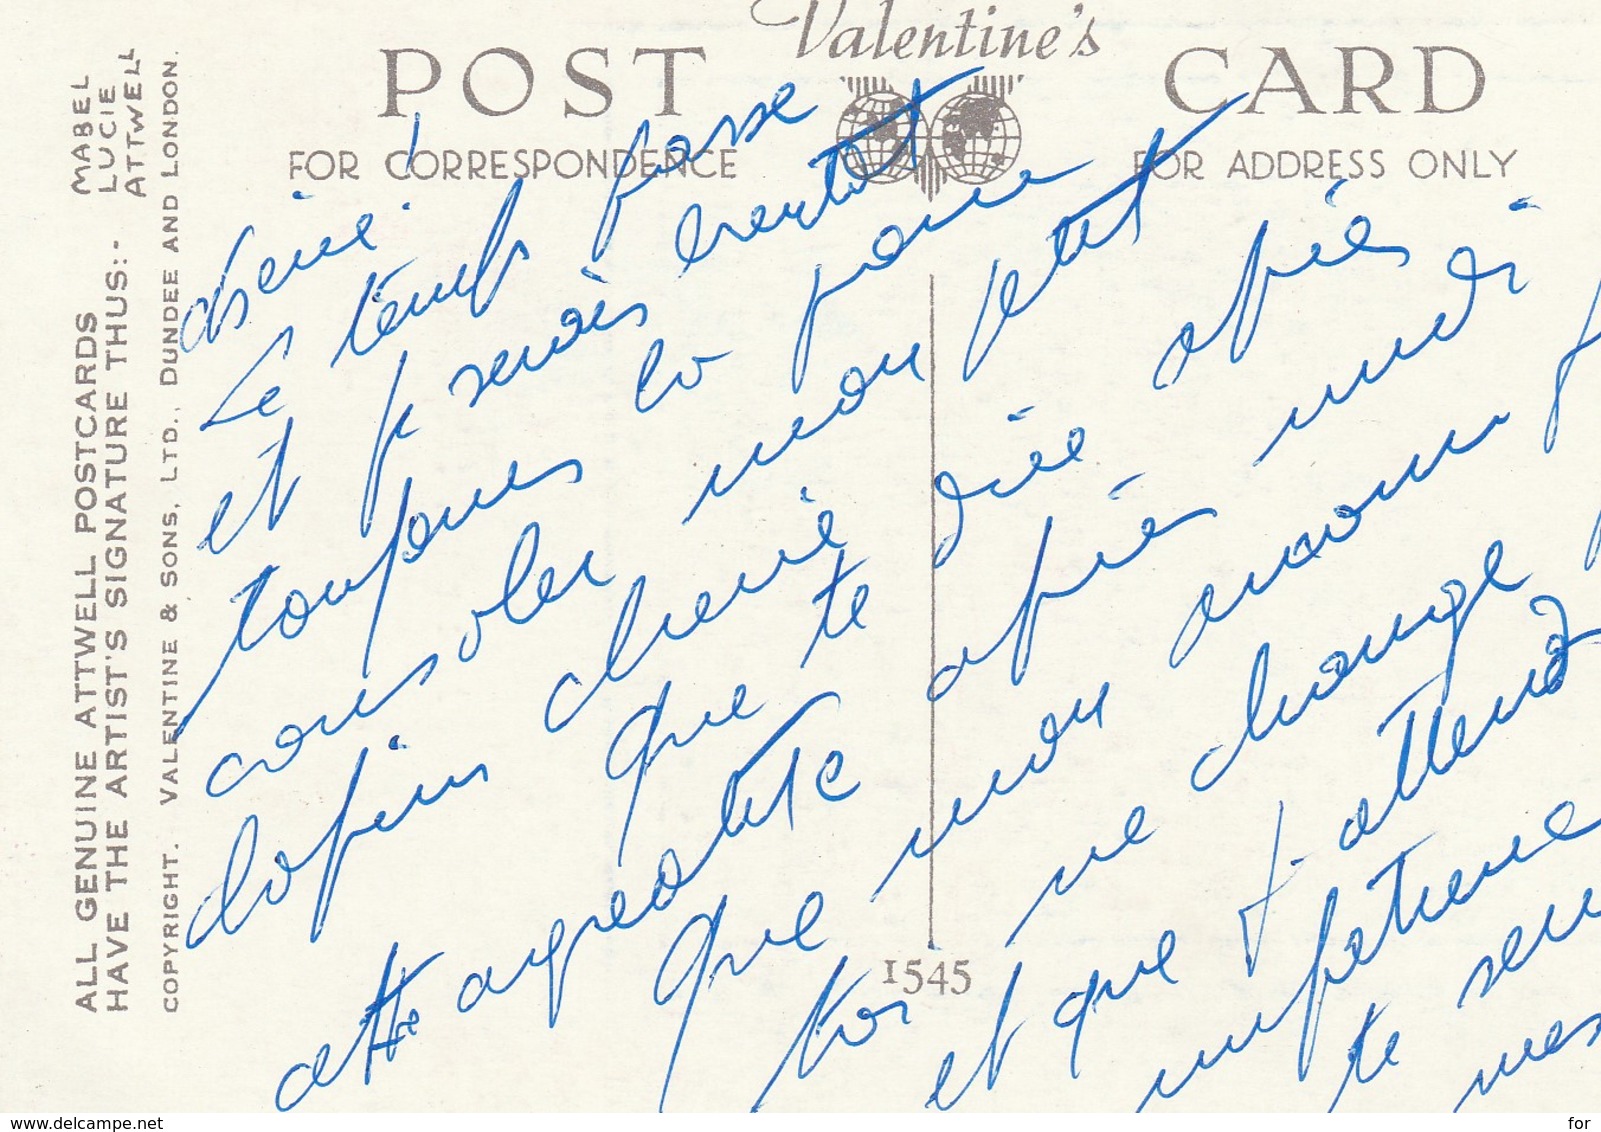 Valentine's
POST CARD
FOR CORRESPONDENCE
FOR ADDRESS ONLY
MABEL
LUCIE
ATTWELL
ALL GENUINE ATTWELL POSTCARDS
HAVE THE ARTIST'S SIGNATURE THUS:-
COPYRIGHT. VALENTINE & SONS, LTD., DUNDEE AND LONDON.
1545
chérie!
Le temps passe
et je serais bientôt
toujours là pour
consoler mon petit
lapin chérie
que te dire après
cette agréable après midi
que mon amour
toi ne change
et que j'attend
te
www.delcampe.net
for